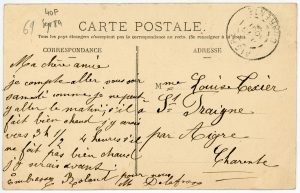 69
40F
CARTE POSTALE.
Tous les pays étrangers n'acceptent pas la correspondance au recto. (Se renseigner à la poste).
CORRESPONDANCE
ADRESSE
Ma chère amie
je compte aller vous voir
samedi comme je ne peut
aller le matin s'il
fait bien chaud j'y irais
vers 3h 1/2 4 heures s'il
ne fait pas bien chaud
j'y irais avant
embrassez pour nous
Mme Louise Texier
St Fraigne
par Aigre
Charente